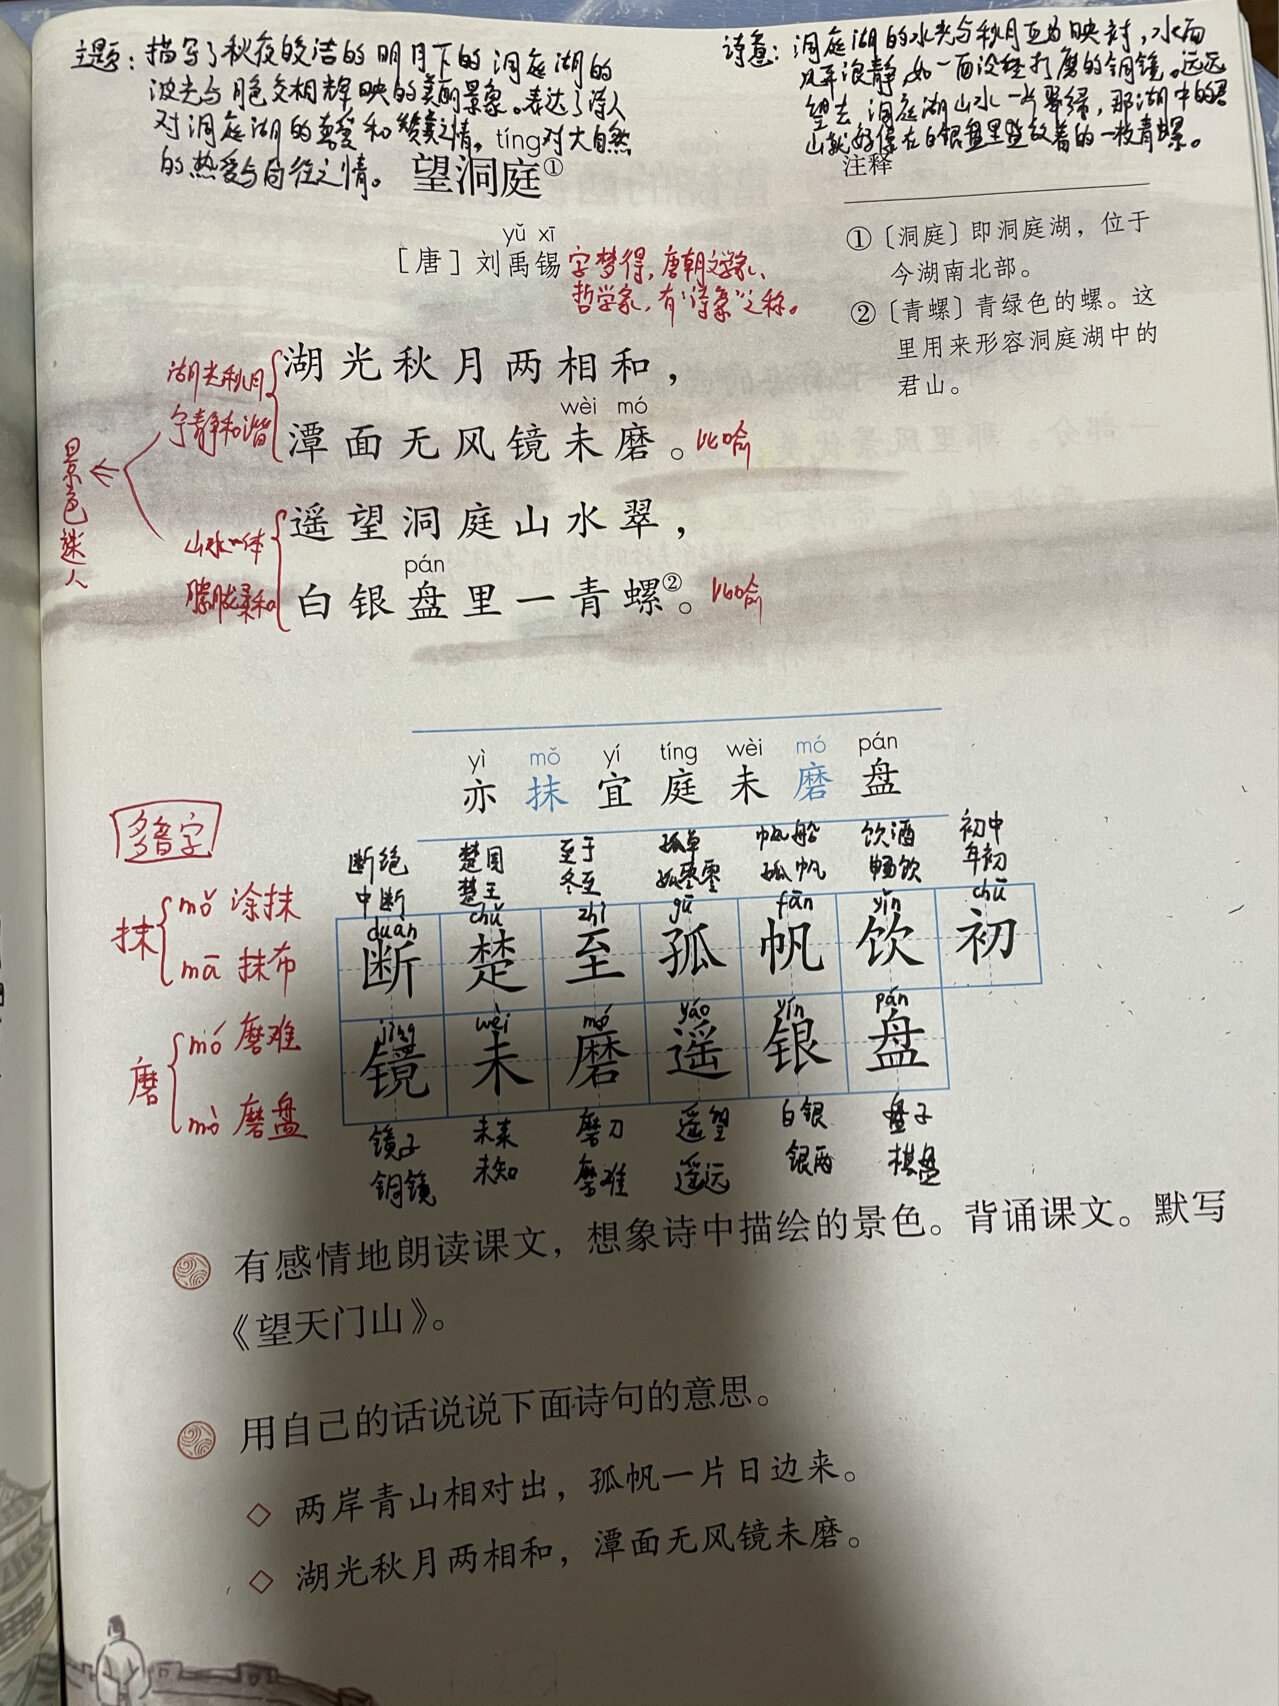 主题：描写了秋夜皎洁的明月下的洞庭湖的
波光与月色交相辉映的美丽景象。表达了诗人
对洞庭湖的喜爱和赞美之情。对大自然
的热爱与向往之情。
诗意：洞庭湖的水光与秋月互为映衬，水面
风平浪静，如一面没经打磨的铜镜。远远
望去洞庭湖山水一片翠绿，那湖中的君
山就好像在白银盘里盛放着的一枚青螺。
tíng
望洞庭①
yǔ xī
［唐］刘禹锡
字梦得，唐朝文学家、
哲学家，有“诗豪”之称。
注释
①〔洞庭〕即洞庭湖，位于
今湖南北部。
②〔青螺〕青绿色的螺。这
里用来形容洞庭湖中的
君山。
湖光秋月
宁静和谐
湖光秋月两相和，
wèi mó
潭面无风镜未磨。比喻
景色迷人
山水一体
朦胧柔和
遥望洞庭山水翠，
pán
白银盘里一青螺②。比喻
yì mǒ yí tíng wèi mó pán
亦 抹 宜 庭 未 磨 盘
多音字
抹 mǒ 涂抹
mā 抹布
磨 mó 磨难
mò 磨盘
断绝 楚国 至于 孤单 帆船 饮酒 初中
中断 楚王 冬至 孤零零 孤帆 畅饮 年初
duàn chǔ zhì gū fān yǐn chū
断 楚 至 孤 帆 饮 初
jìng wèi mó yáo yín pán
镜 未 磨 遥 银 盘
镜子 未来 磨刀 遥望 白银 盘子
铜镜 未知 磨难 遥远 银两 棋盘
有感情地朗读课文，想象诗中描绘的景色。背诵课文。默写
《望天门山》。
用自己的话说说下面诗句的意思。
◇ 两岸青山相对出，孤帆一片日边来。
◇ 湖光秋月两相和，潭面无风镜未磨。